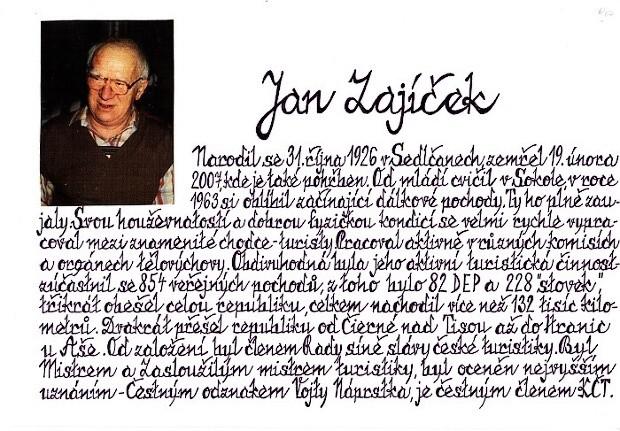 Jan Zajíček
Narodil se 31. října 1926 v Sedlčanech, zemřel 19. února
2007, kde je také pohřben. Od mládí cvičil v Sokole, v roce
1963 si oblíbil začínající dálkové pochody. Ty ho plně zau-
jaly. Svou houževnatostí a dobrou fyzickou kondicí se velmi rychle vypra-
coval mezi znamenité chodce-turisty. Pracoval aktivně v různých komisích
a orgánech tělovýchovy. Obdivuhodná byla jeho aktivní turistická činnost-
zúčastnil se 854 veřejných pochodů, z toho bylo 82 DEP a 228 "stovek",
třikrát obešel celou republiku, celkem nachodil více než 132 tisíc kilo-
metrů. Dvakrát přešel republiku od Čierné nad Tisou až do Hranic
u Aše. Od založení byl členem Rady síně slávy české turistiky. Byl
Mistrem a Zasloužilým mistrem turistiky, byl oceněn nejvyšším
uznáním - Čestným odznakem Vojty Náprstka, je čestným členem KČT.